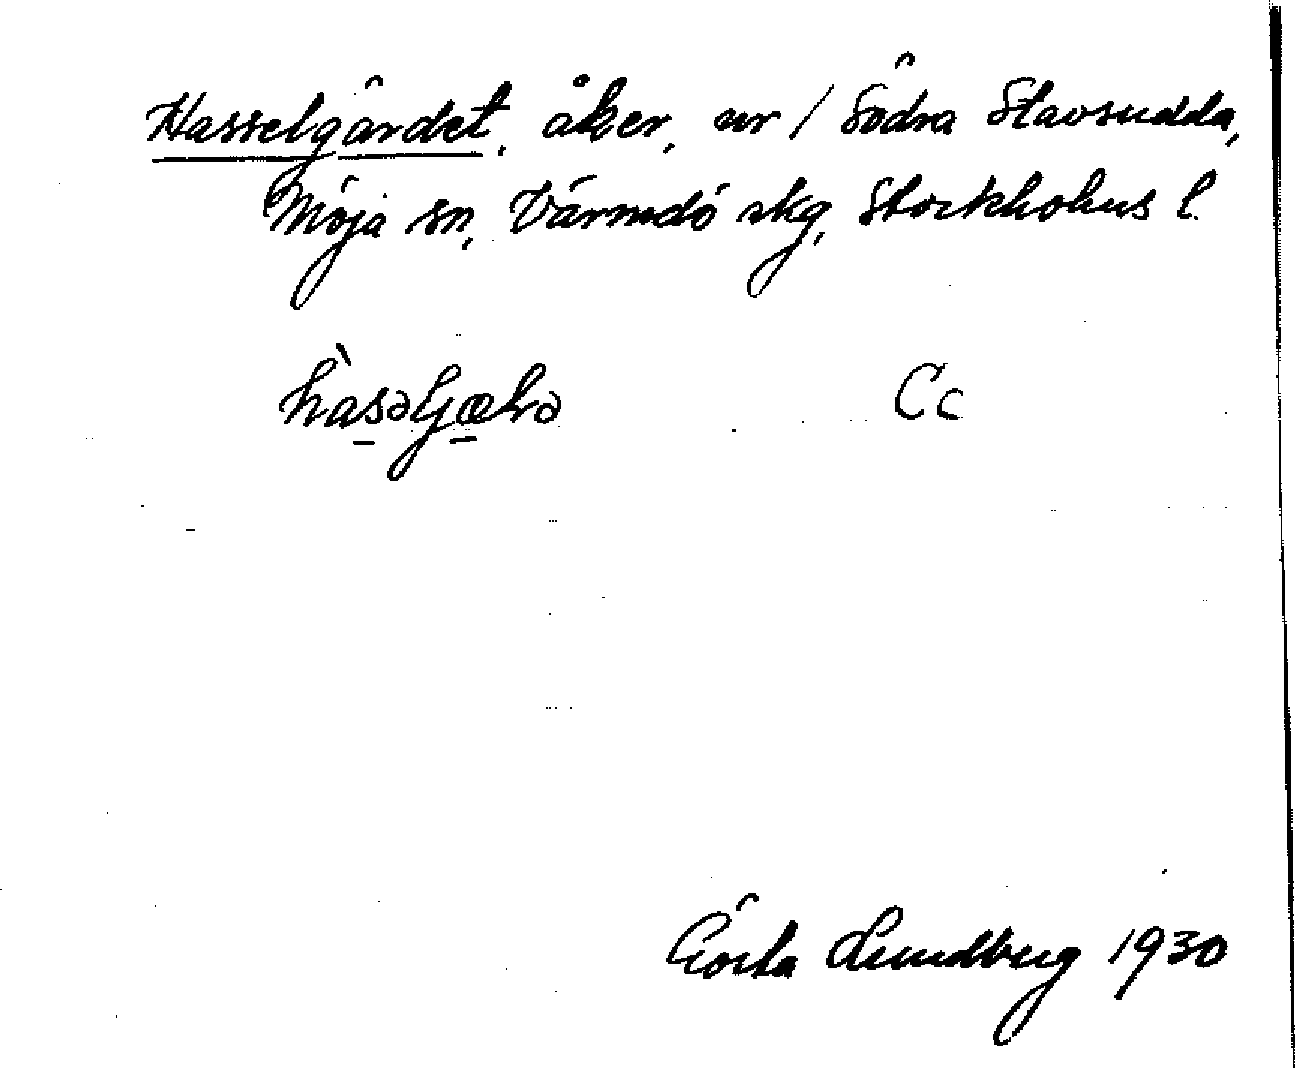 Hasselgärdet, åker, ur / Södra Stavsudda,
Möja sn, Värmdö skg, Stockholms l.
Cc
Gösta Lundberg 1930